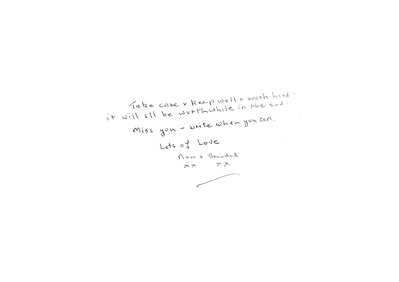 Take care & keep well & work hard -
it will all be worthwhile in the end.
Miss you - write when you can.
Lots of Love
Nan & Grandad
xx xx